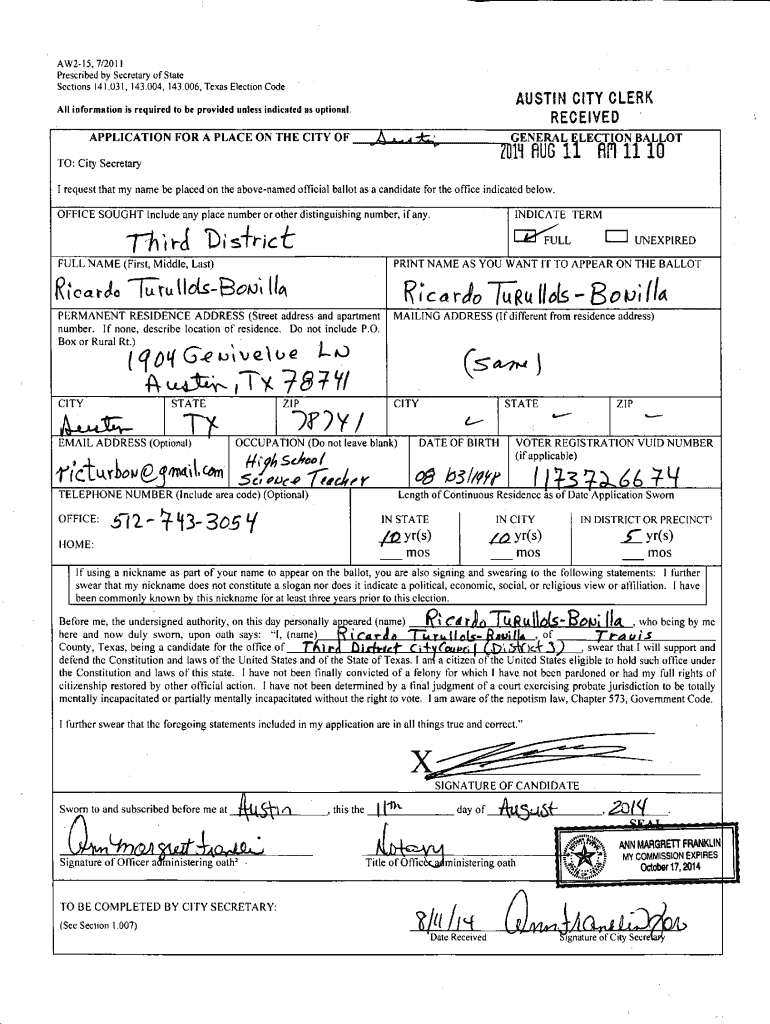 AW2-15, 7/2011
Prescribed by Secretary of State
Sections 141.031, 143.004, 143.006, Texas Election Code
All information is required to be provided unless indicated as optional.
AUSTIN CITY CLERK
RECEIVED
2014 AUG 11 AM 11 10
APPLICATION FOR A PLACE ON THE CITY OF Austin GENERAL ELECTION BALLOT
TO: City Secretary
I request that my name be placed on the above-named official ballot as a candidate for the office indicated below.
OFFICE SOUGHT Include any place number or other distinguishing number, if any. INDICATE TERM
Third District FULL UNEXPIRED
FULL NAME (First, Middle, Last) PRINT NAME AS YOU WANT IT TO APPEAR ON THE BALLOT
Ricardo Turullols-Bonilla Ricardo Turullols-Bonilla
PERMANENT RESIDENCE ADDRESS (Street address and apartment MAILING ADDRESS (If different from residence address)
number. If none, describe location of residence. Do not include P.O.
Box or Rural Rt.)
1904 Genivelve LN (same)
Austin, TX 78741
CITY STATE ZIP CITY STATE ZIP
Austin TX 78741
EMAIL ADDRESS (Optional) OCCUPATION (Do not leave blank) DATE OF BIRTH VOTER REGISTRATION VUID NUMBER
(if applicable)
ricturbon@gmail.com High School Science Teacher 08/03/1948 1173726674
TELEPHONE NUMBER (Include area code) (Optional) Length of Continuous Residence as of Date Application Sworn
OFFICE: 512-743-3054 IN STATE IN CITY IN DISTRICT OR PRECINCT¹
10 yr(s) 10 yr(s) 5 yr(s)
HOME: mos mos mos
If using a nickname as part of your name to appear on the ballot, you are also signing and swearing to the following statements: I further
swear that my nickname does not constitute a slogan nor does it indicate a political, economic, social, or religious view or affiliation. I have
been commonly known by this nickname for at least three years prior to this election.
Before me, the undersigned authority, on this day personally appeared (name) Ricardo Turullols-Bonilla, who being by me
here and now duly sworn, upon oath says: "I, (name) Ricardo Turullols-Bonilla, of Travis
County, Texas, being a candidate for the office of Third District City Council (District 3), swear that I will support and
defend the Constitution and laws of the United States and of the State of Texas. I am a citizen of the United States eligible to hold such office under
the Constitution and laws of this state. I have not been finally convicted of a felony for which I have not been pardoned or had my full rights of
citizenship restored by other official action. I have not been determined by a final judgment of a court exercising probate jurisdiction to be totally
mentally incapacitated or partially mentally incapacitated without the right to vote. I am aware of the nepotism law, Chapter 573, Government Code.
I further swear that the foregoing statements included in my application are in all things true and correct."
X
SIGNATURE OF CANDIDATE
Sworn to and subscribed before me at Austin, this the 11th day of August, 2014
SEAL
Ann Margrett Franklin Notary
Signature of Officer administering oath² Title of Officer administering oath
ANN MARGRETT FRANKLIN
MY COMMISSION EXPIRES
October 17, 2014
TO BE COMPLETED BY CITY SECRETARY:
(See Section 1.007)
8/11/14 Ann Franklin for
Date Received Signature of City Secretary